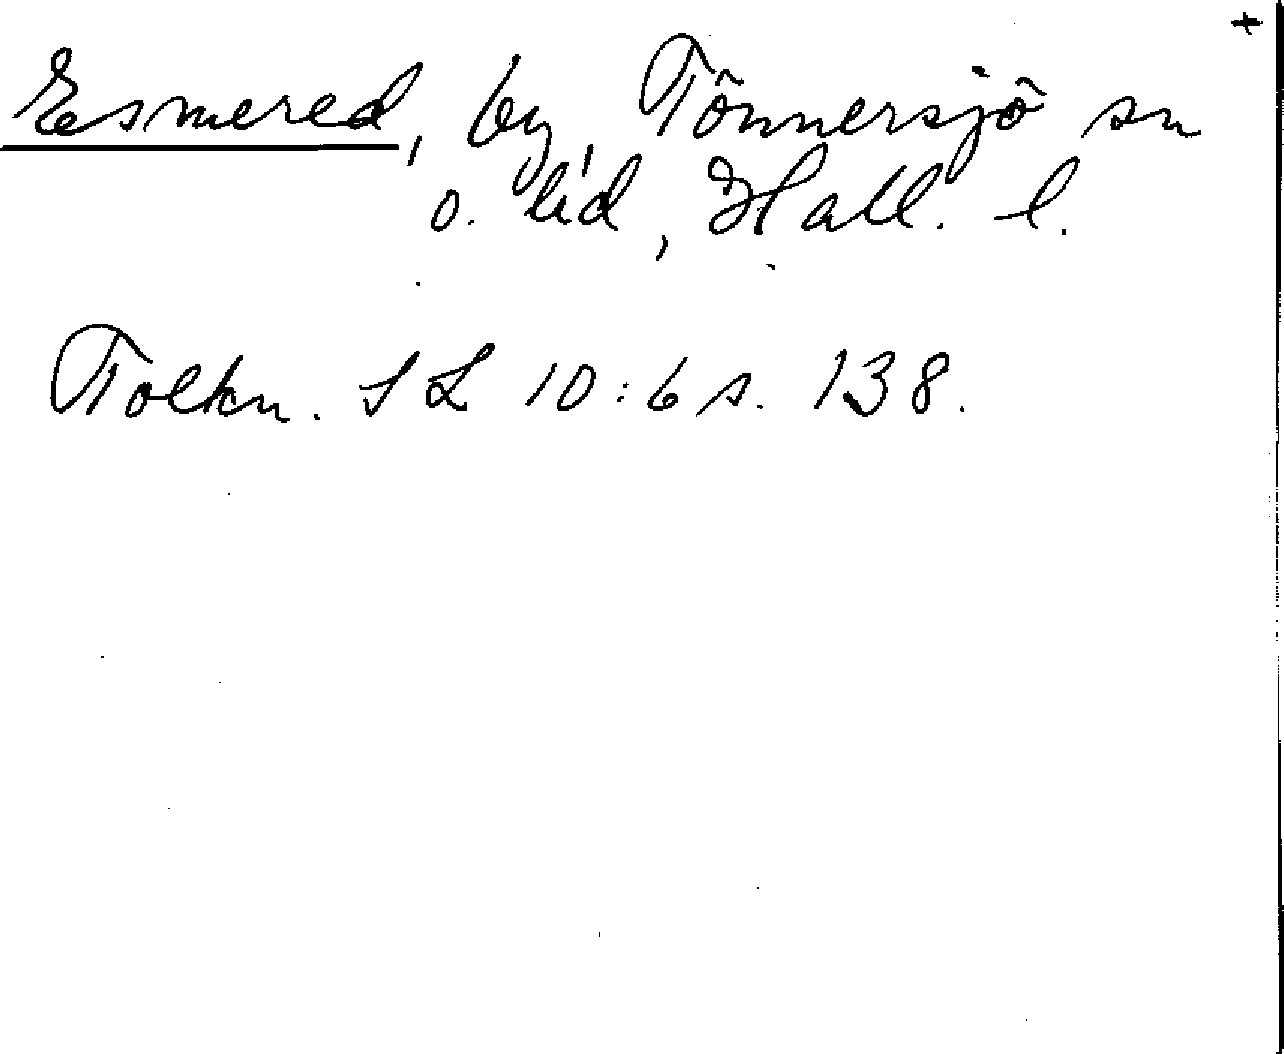 +
Esmered, by, Tönnersjö sn
o. hd, Hall. l.
Tolkn. SL 10:6 s. 138.